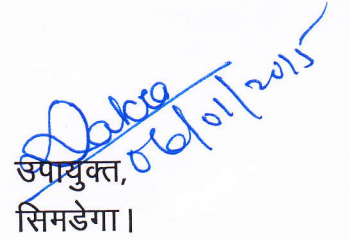 06/01/2015
उपायुक्त,
सिमडेगा।